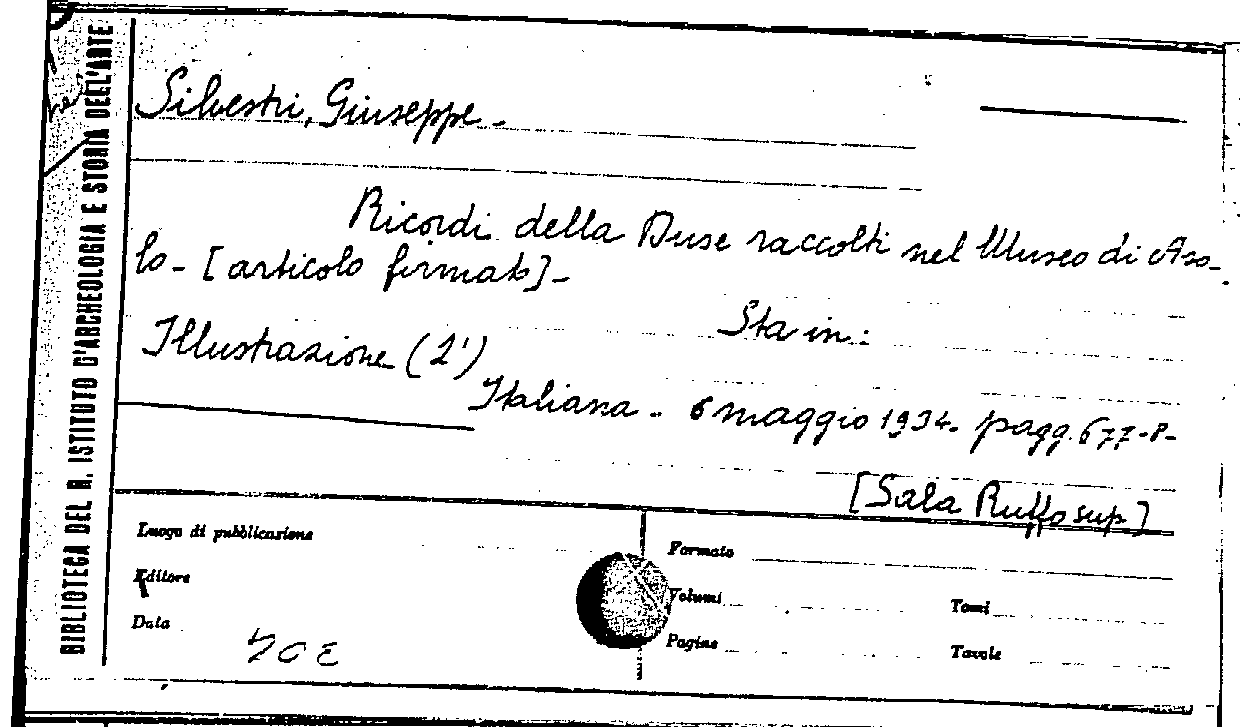 BIBLIOTECA DEL R. ISTITUTO D'ARCHEOLOGIA E STORIA DELL'ARTE
Silvestri, Giuseppe.-
Ricordi della Duse raccolti nel Museo di Aso-
lo.- [articolo firmato].-
Sta in:
Illustrazione (L')
Italiana.- 6 maggio 1934. pagg. 677-8-
[Sala Ruffo sup]
Luogo di pubblicazione
Formato
Editore
Volumi
Tomi
Data
Pagine
Tavole